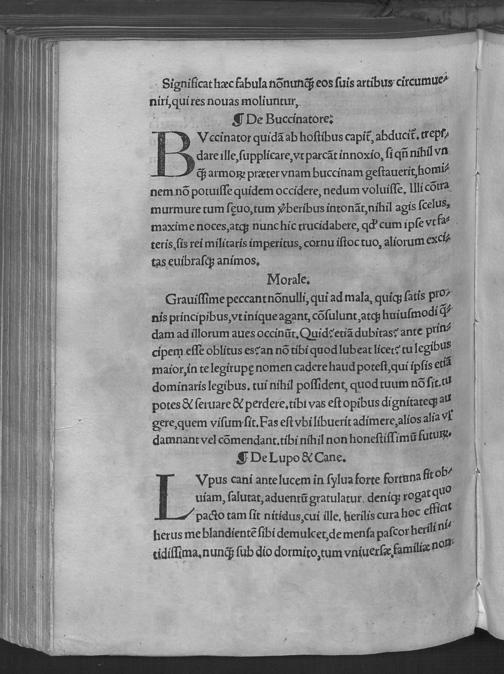 Significat hæc fabula nõnunꝗ̃ eos suis artibus circumue-
niri, qui res nouas moliuntur,
¶ De Buccinatore:
BVccinator quidã ab hostibus capit̃, abducit̃. trepi-
dare ille, supplicare, vt parcãt innoxio, si qñ nihil vn
ꝗ̃ armoꝝ præter vnam buccinam gestauerit, homi-
nem nõ potuisse quidem occidere, nedum voluisse. Illi cõtra
murmure tum sęuo, tum ṽberibus intonãt, nihil agis scelus,
maxime noces, atqꝫ nunc hic trucidabere, qđ cum ipse vt fa-
teris, sis rei militaris imperitus, cornu istoc tuo, aliorum exci-
tas euibrasqꝫ animos.
Morale.
Grauissime peccant nõnulli, qui ad mala, quiqꝫ satis pro-
nis principibus, vt inique agant, cõsulunt, atqꝫ huiusmodi q̃-
dam ad illorum aues occinũt. Quid? etiã dubitas? ante prin-
cipem esse oblitus es? an nõ tibi quod lubeat licet? tu legibus
maior, in te legirupę nomen cadere haud potest, qui ipsis etiã
dominaris legibus. tui nihil possident, quod tuum nõ sit. tu
potes & seruare & perdere, tibi vas est opibus dignitateqꝫ au
gere, quem visum sit. Fas est vbi libuerit adimere, alios alia vt
damnant vel cõmendant. tibi nihil non honestissimũ futuꝝ.
¶ De Lupo & Cane.
LVpus cani ante lucem in sylua forte fortuna fit ob-
uiam, salutat, aduentũ gratulatur. deniqꝫ rogat quo
pacto tam sit nitidus, cui ille. herilis cura hoc efficit
herus me blandientẽ sibi demulcet, de mensa pascor herili ni-
tidissima, nunꝗ̃ sub dio dormito, tum vniuersæ, familiæ non